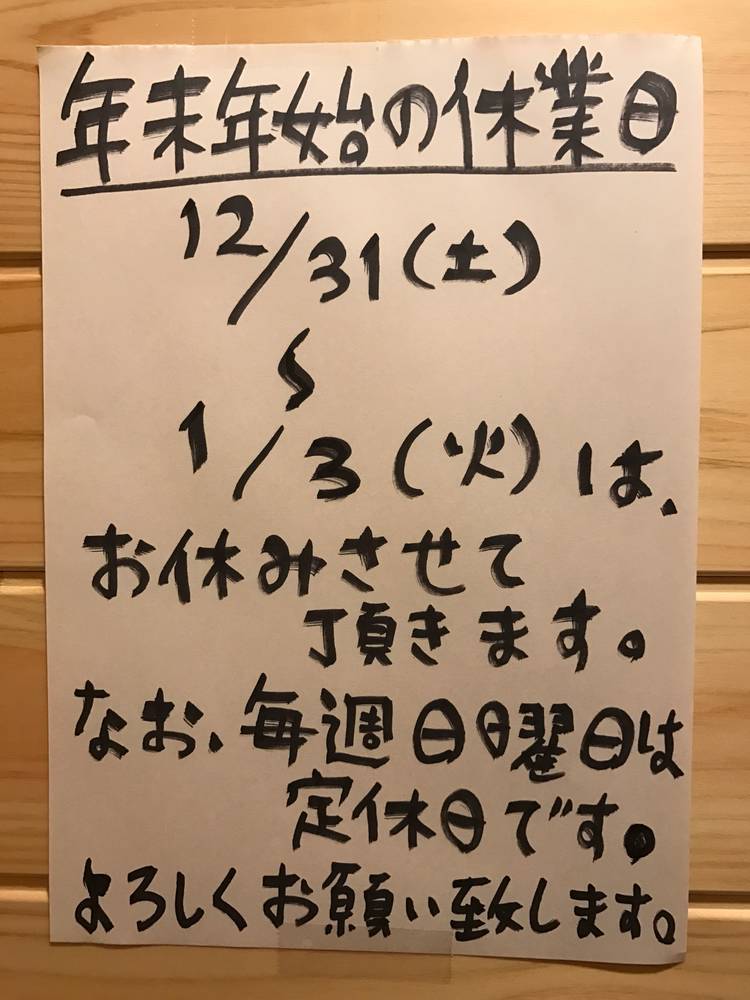 年末年始の休業日
12/31(土)
〜
1/3(火)は、
お休みさせて
頂きます。
なお、毎週日曜日は
定休日です。
よろしくお願い致します。